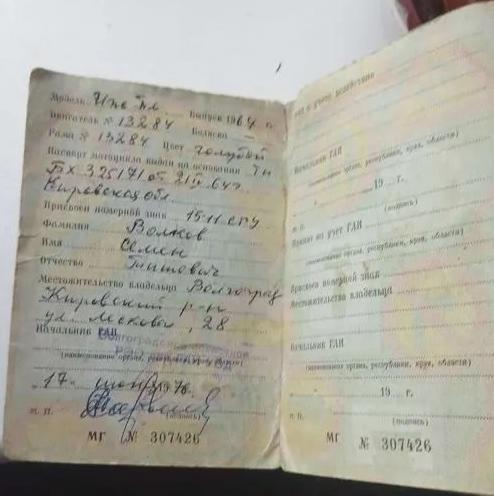 Модель Иж Пл Выпуск 1964 г.
Двигатель № 13284 Коляска —
Рама № 13284 Цвет голубой
Паспорт мотоцикла выдан на основании
БХ 325171 от
Кировская обл.
Присвоен номерной знак 15-11
Фамилия Волков
Имя Семен
Отчество Титович
Местожительство владельца Волгоград
Кировский р-н
ул. 28
Начальник ГАИ
(наименование органа, республики, края, области)
17 197 г.
м. п. (подпись)
МГ № 307426
Начальник ГАИ
(наименование органа, республики, края, области)
19 г.
м. п. (подпись)
Принят на учет ГАИ
(наименование органа, республики, края, области)
Присвоен номерной знак
Местожительство владельца
Начальник ГАИ
(наименование органа, республики, края, области)
19 г.
м. п. (подпись)
МГ № 307426